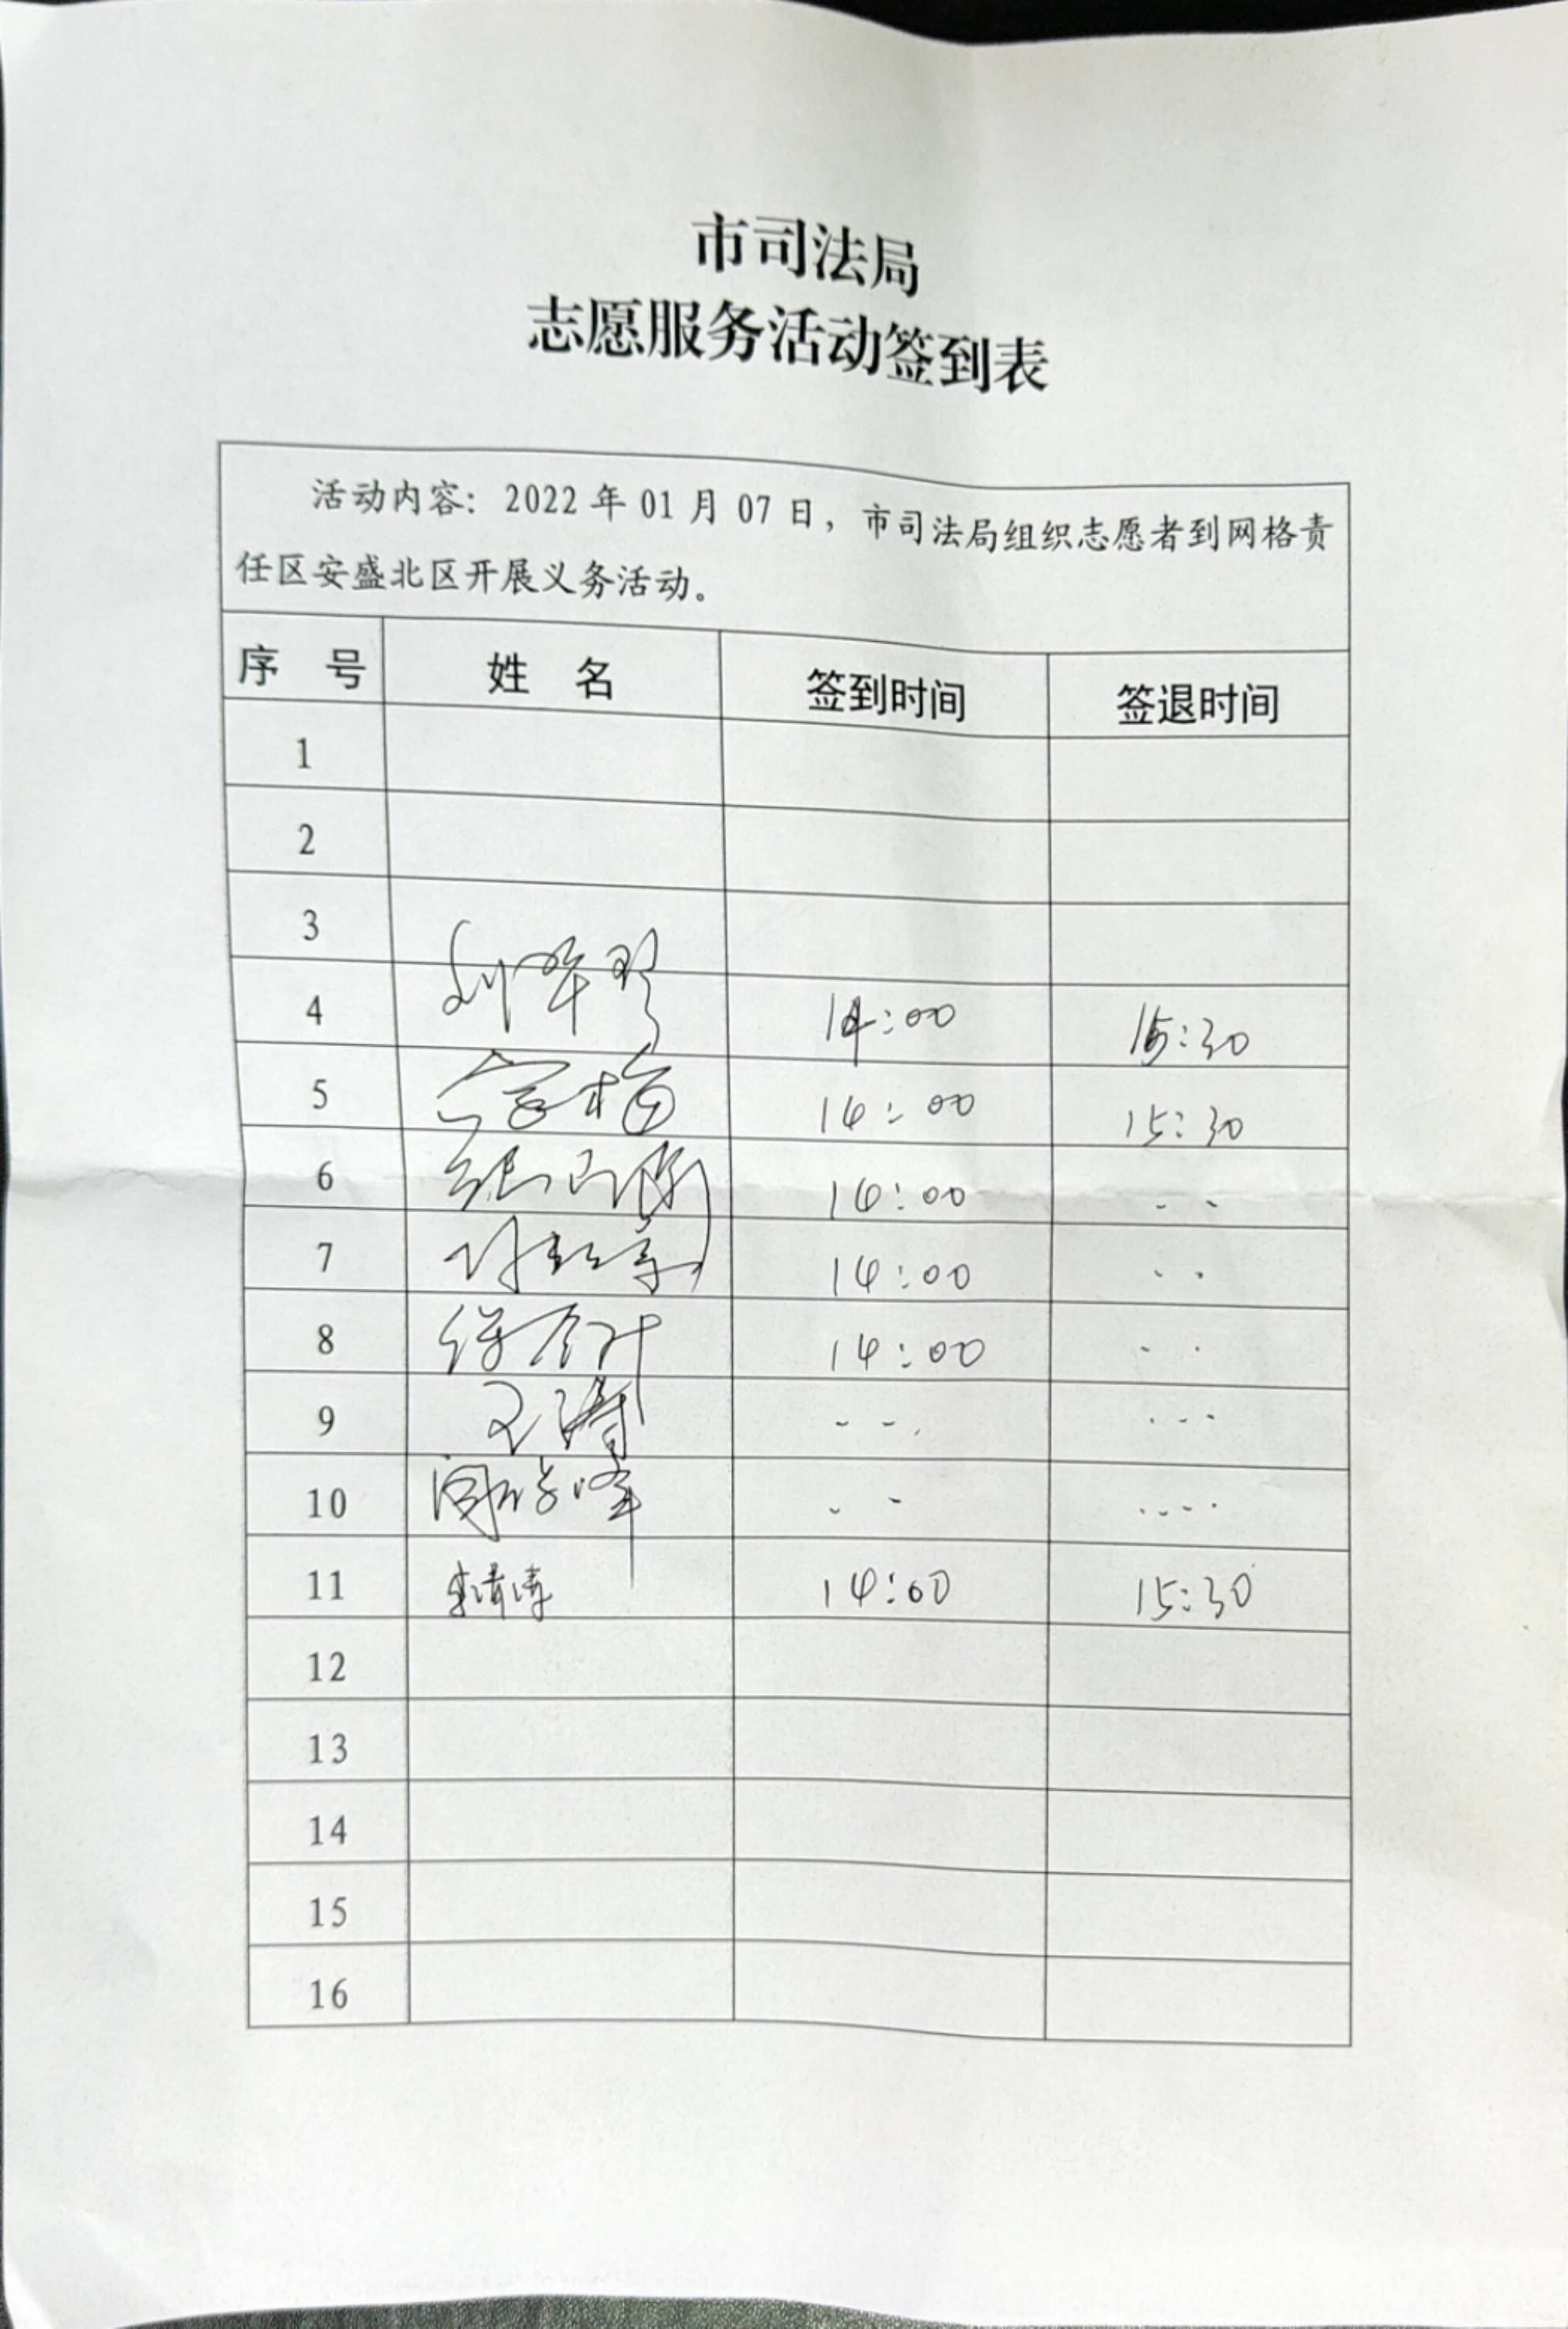 市司法局
志愿服务活动签到表
活动内容：2022年01月07日，市司法局组织志愿者到网格责
任区安盛北区开展义务活动。
序 号 姓 名 签到时间 签退时间
1
2
3
4 14:00 15:30
5 14:00 15:30
6 14:00
7 14:00
8 14:00
9 王涛
10
11 14:00 15:30
12
13
14
15
16